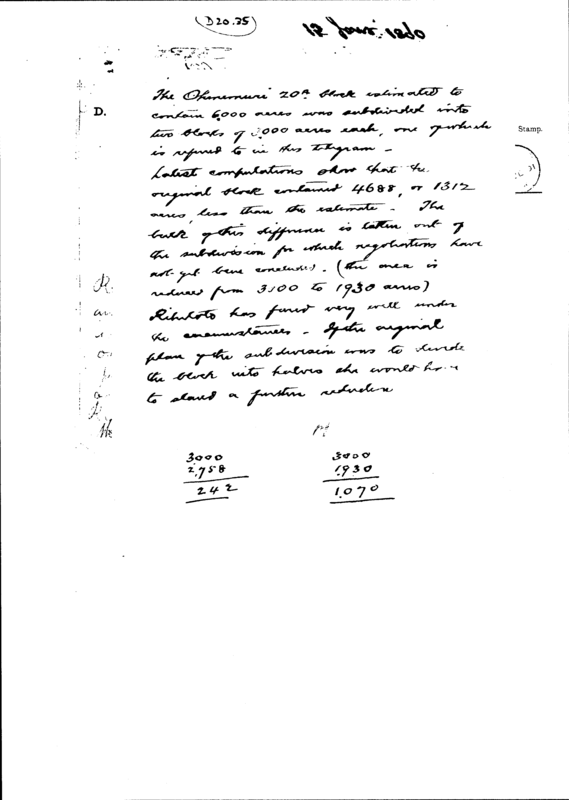 D20.75
12 Jan: 1880
D.
Stamp.
The Ohinemuri 20A block estimated to
contain 6000 acres was subdivided into
two blocks of 3,000 acres each, one of which
is referred to in this telegram -
Latest computations show that the
original block contained 4688, or 1312
acres, less than the estimate - The
bulk of this difference is taken out of
the subdivision for which negotiations have
not yet been concluded. (the area is
reduced from 3000 to 1930 acres)
has fared very well under
the circumstances - If the original
plan of the subdivision was to divide
the block into halves she would have
to stand a further reduction
3000
2,758
242
3000
1,930
1,070